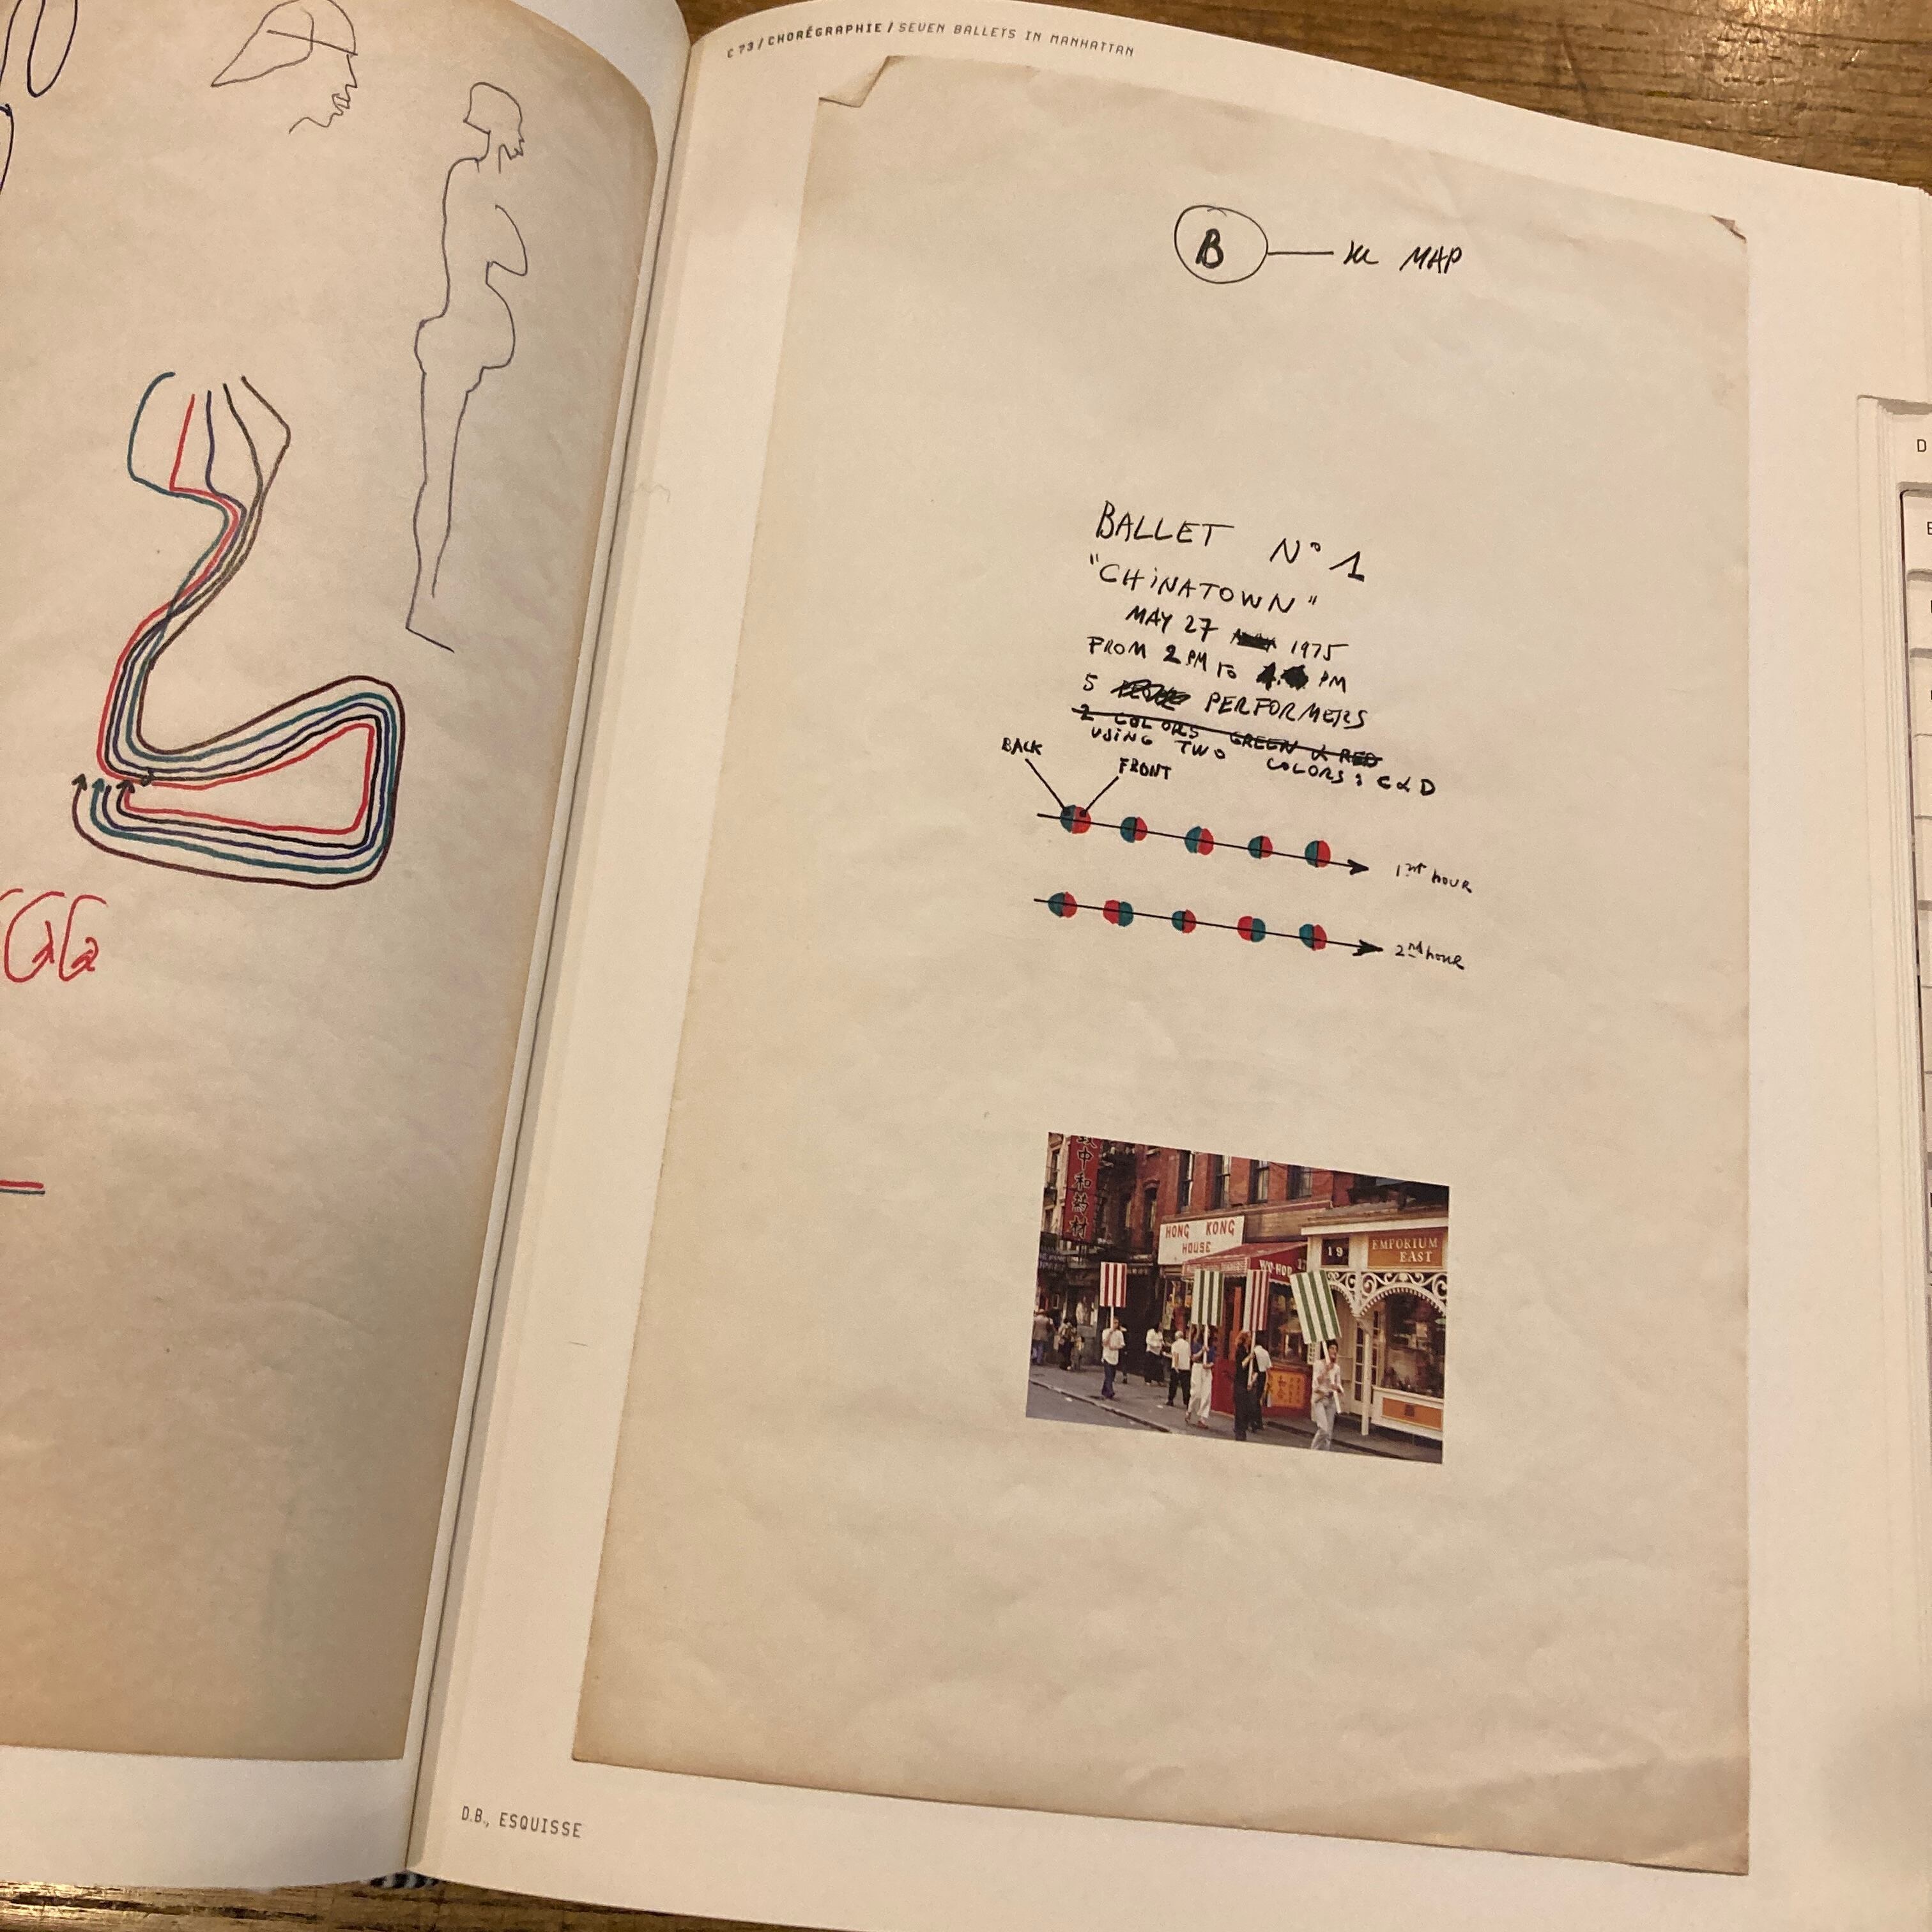 C 73 / CHORÉGRAPHIE / SEVEN BALLETS IN MANHATTAN
B
MAP
BALLET N° 1
"CHINATOWN"
MAY 27 1975
FROM 2 PM TO PM
5 PERFORMERS
2 COLORS GREEN & RED
USING TWO COLORS : C & D
BACK
FRONT
1st hour
2nd hour
中和藥材
HONG KONG
HOUSE
WO-HOP 17
19
EMPORIUM
EAST
D.B., ESQUISSE
D
E